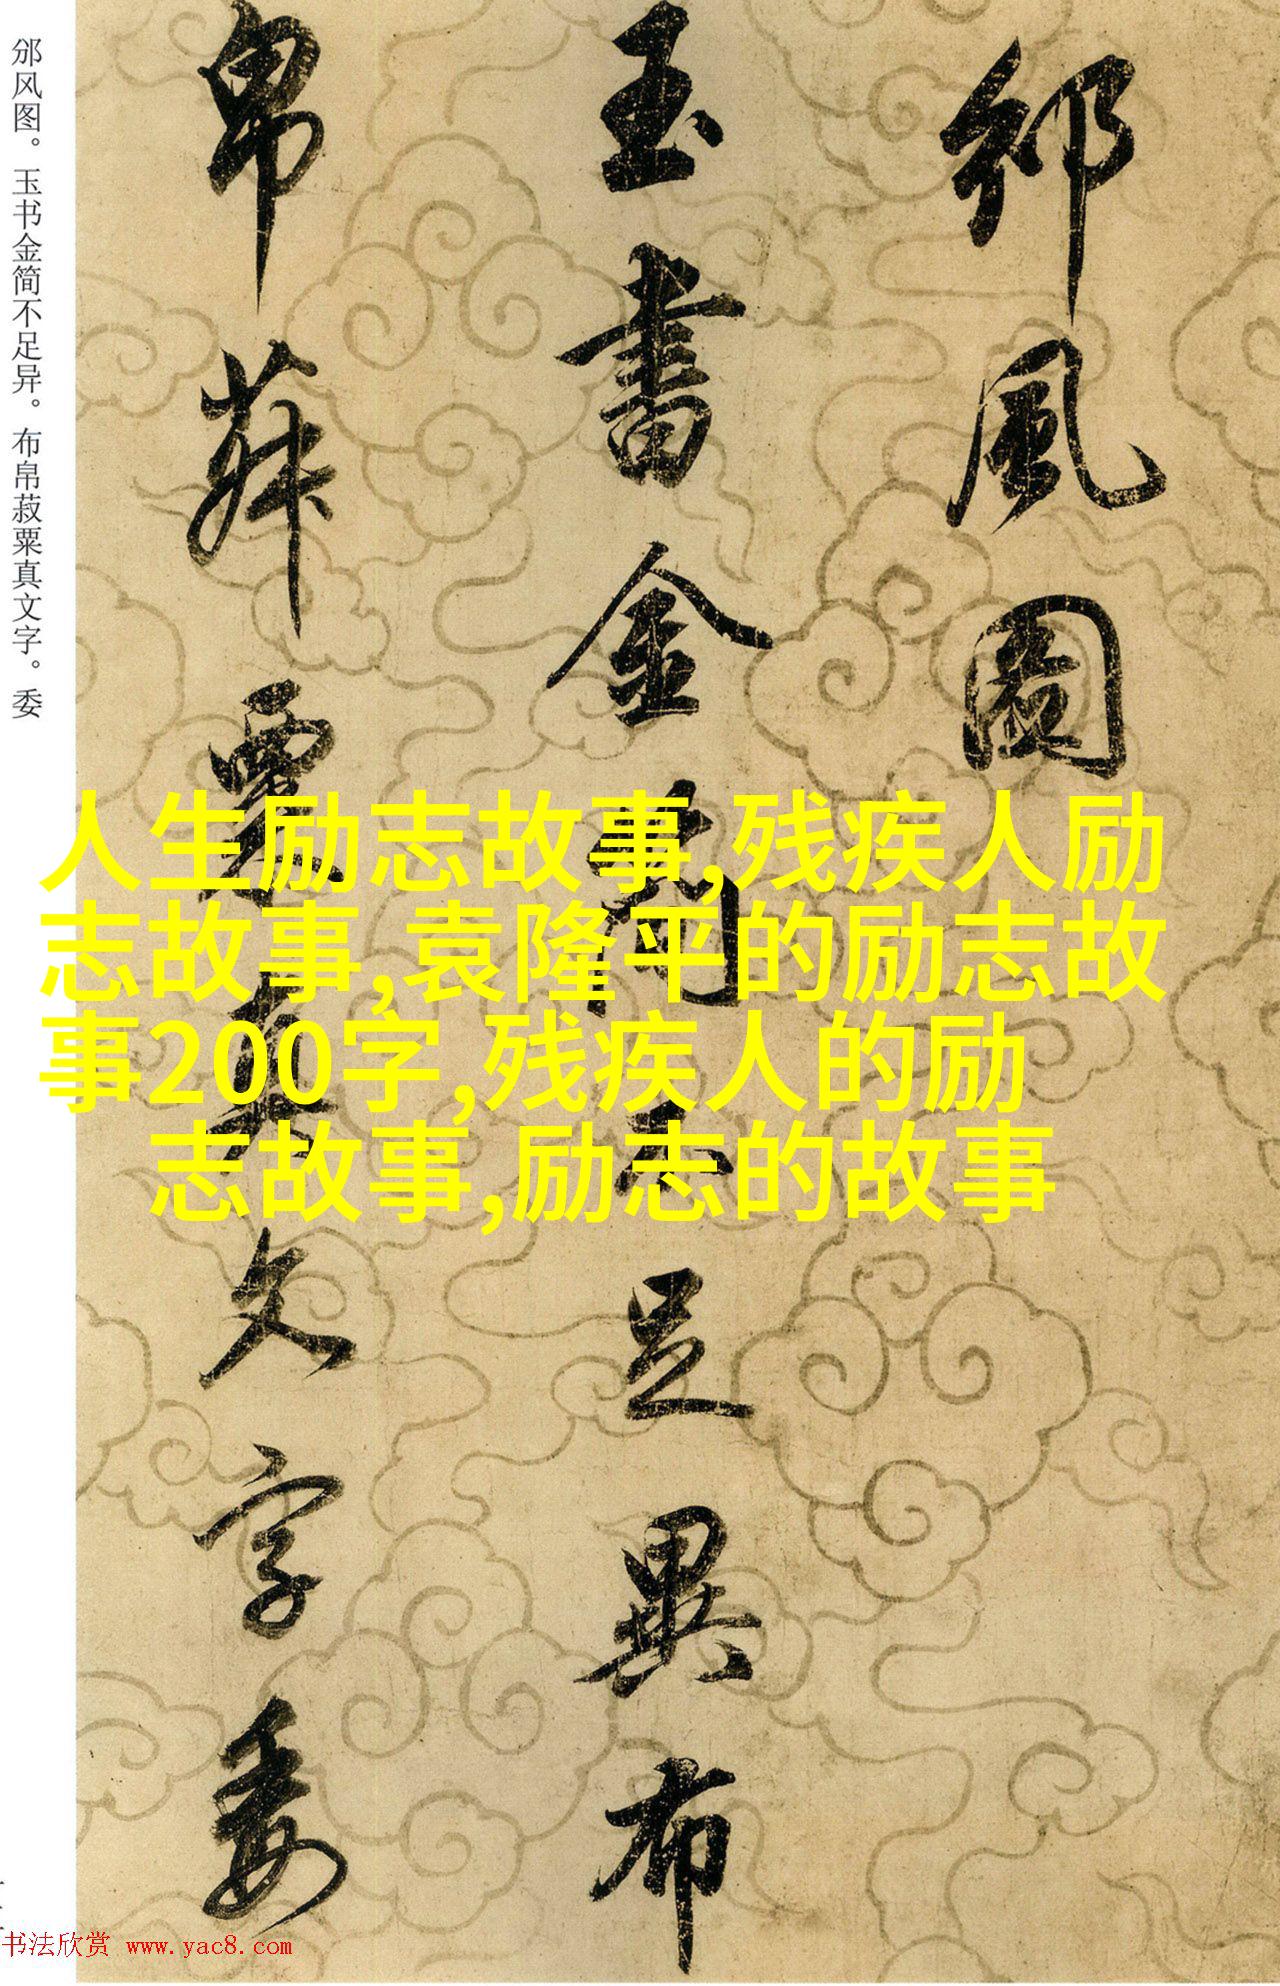 邠風圖
玉書金簡不足異布
帛菽粟真文字委
邠风图。玉书金简不足异。布帛菽粟真文字。委
人生励志故事,残疾人励
志故事,袁隆平的励志故
事200字,残疾人的励
志故事,励志的故事
书法欣赏 www.yac8.com